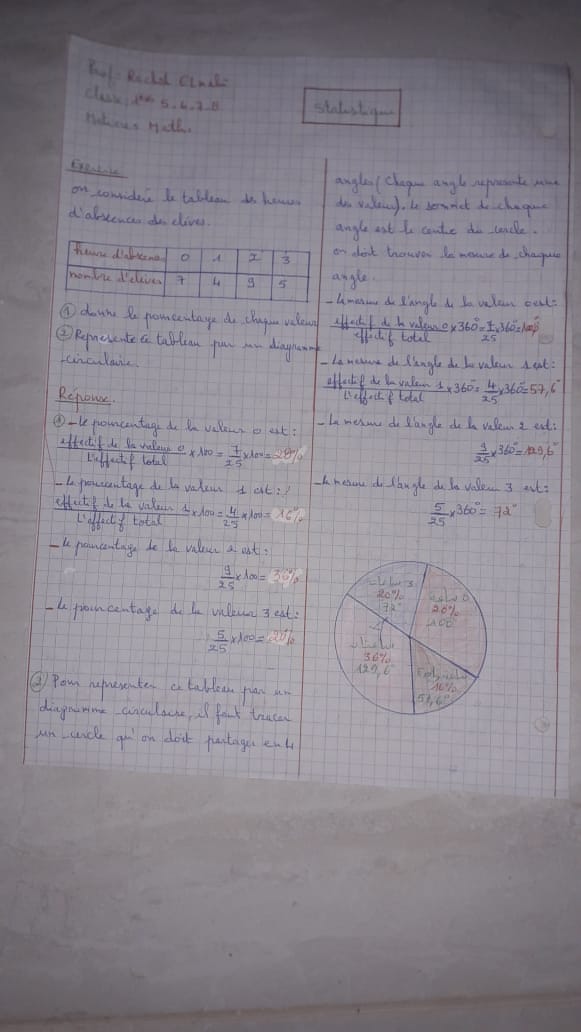 Prof: Rachid
Classe: 5-6-7-8
Matière: Math.
Statistique
Exercice
on considère le tableau des heures
d'abscences des élives.
heure d'abscence 0 1 2 3
nombre d'élives 7 4 9 5
① donne le pourcentage de chaque valeur
② Represente ce tableau par un diagramme
circulaire.
Réponse.
① - Le pourcentage de la valeur 0 est:
effectif de la valeur 0 / L'effectif total x 100 = 7/25 x 100 = 28%
- Le pourcentage de la valeur 1 est:
effectif de la valeur 1 / L'effectif total x 100 = 4/25 x 100 = 16%
- Le pourcentage de la valeur 2 est:
9/25 x 100 = 36%
- Le pourcentage de la valeur 3 est:
5/25 x 100 = 20%
② Pour representer ce tableau par un
diagramme circulaire, il faut tracer
un cercle qu'on doit partager en 4
angles (chaque angle represente une
des valeurs). le sommet de chaque
angle est le centre du cercle.
on doit trouver la mesure de chaque
angle.
- La mesure de l'angle de la valeur 0 est:
effectif de la valeur 0 / effectif total x 360° = 7/25 x 360° =
- La mesure de l'angle de la valeur 1 est:
effectif de la valeur 1 / L'effectif total x 360° = 4/25 x 360° = 57,6°
- La mesure de l'angle de la valeur 2 est:
9/25 x 360° = 129,6°
- La mesure de l'angle de la valeur 3 est:
5/25 x 360° = 72°
valeur 3
20%
72°
valeur 0
28%
100°
valeur 2
36%
129,6°
16%
57,6°